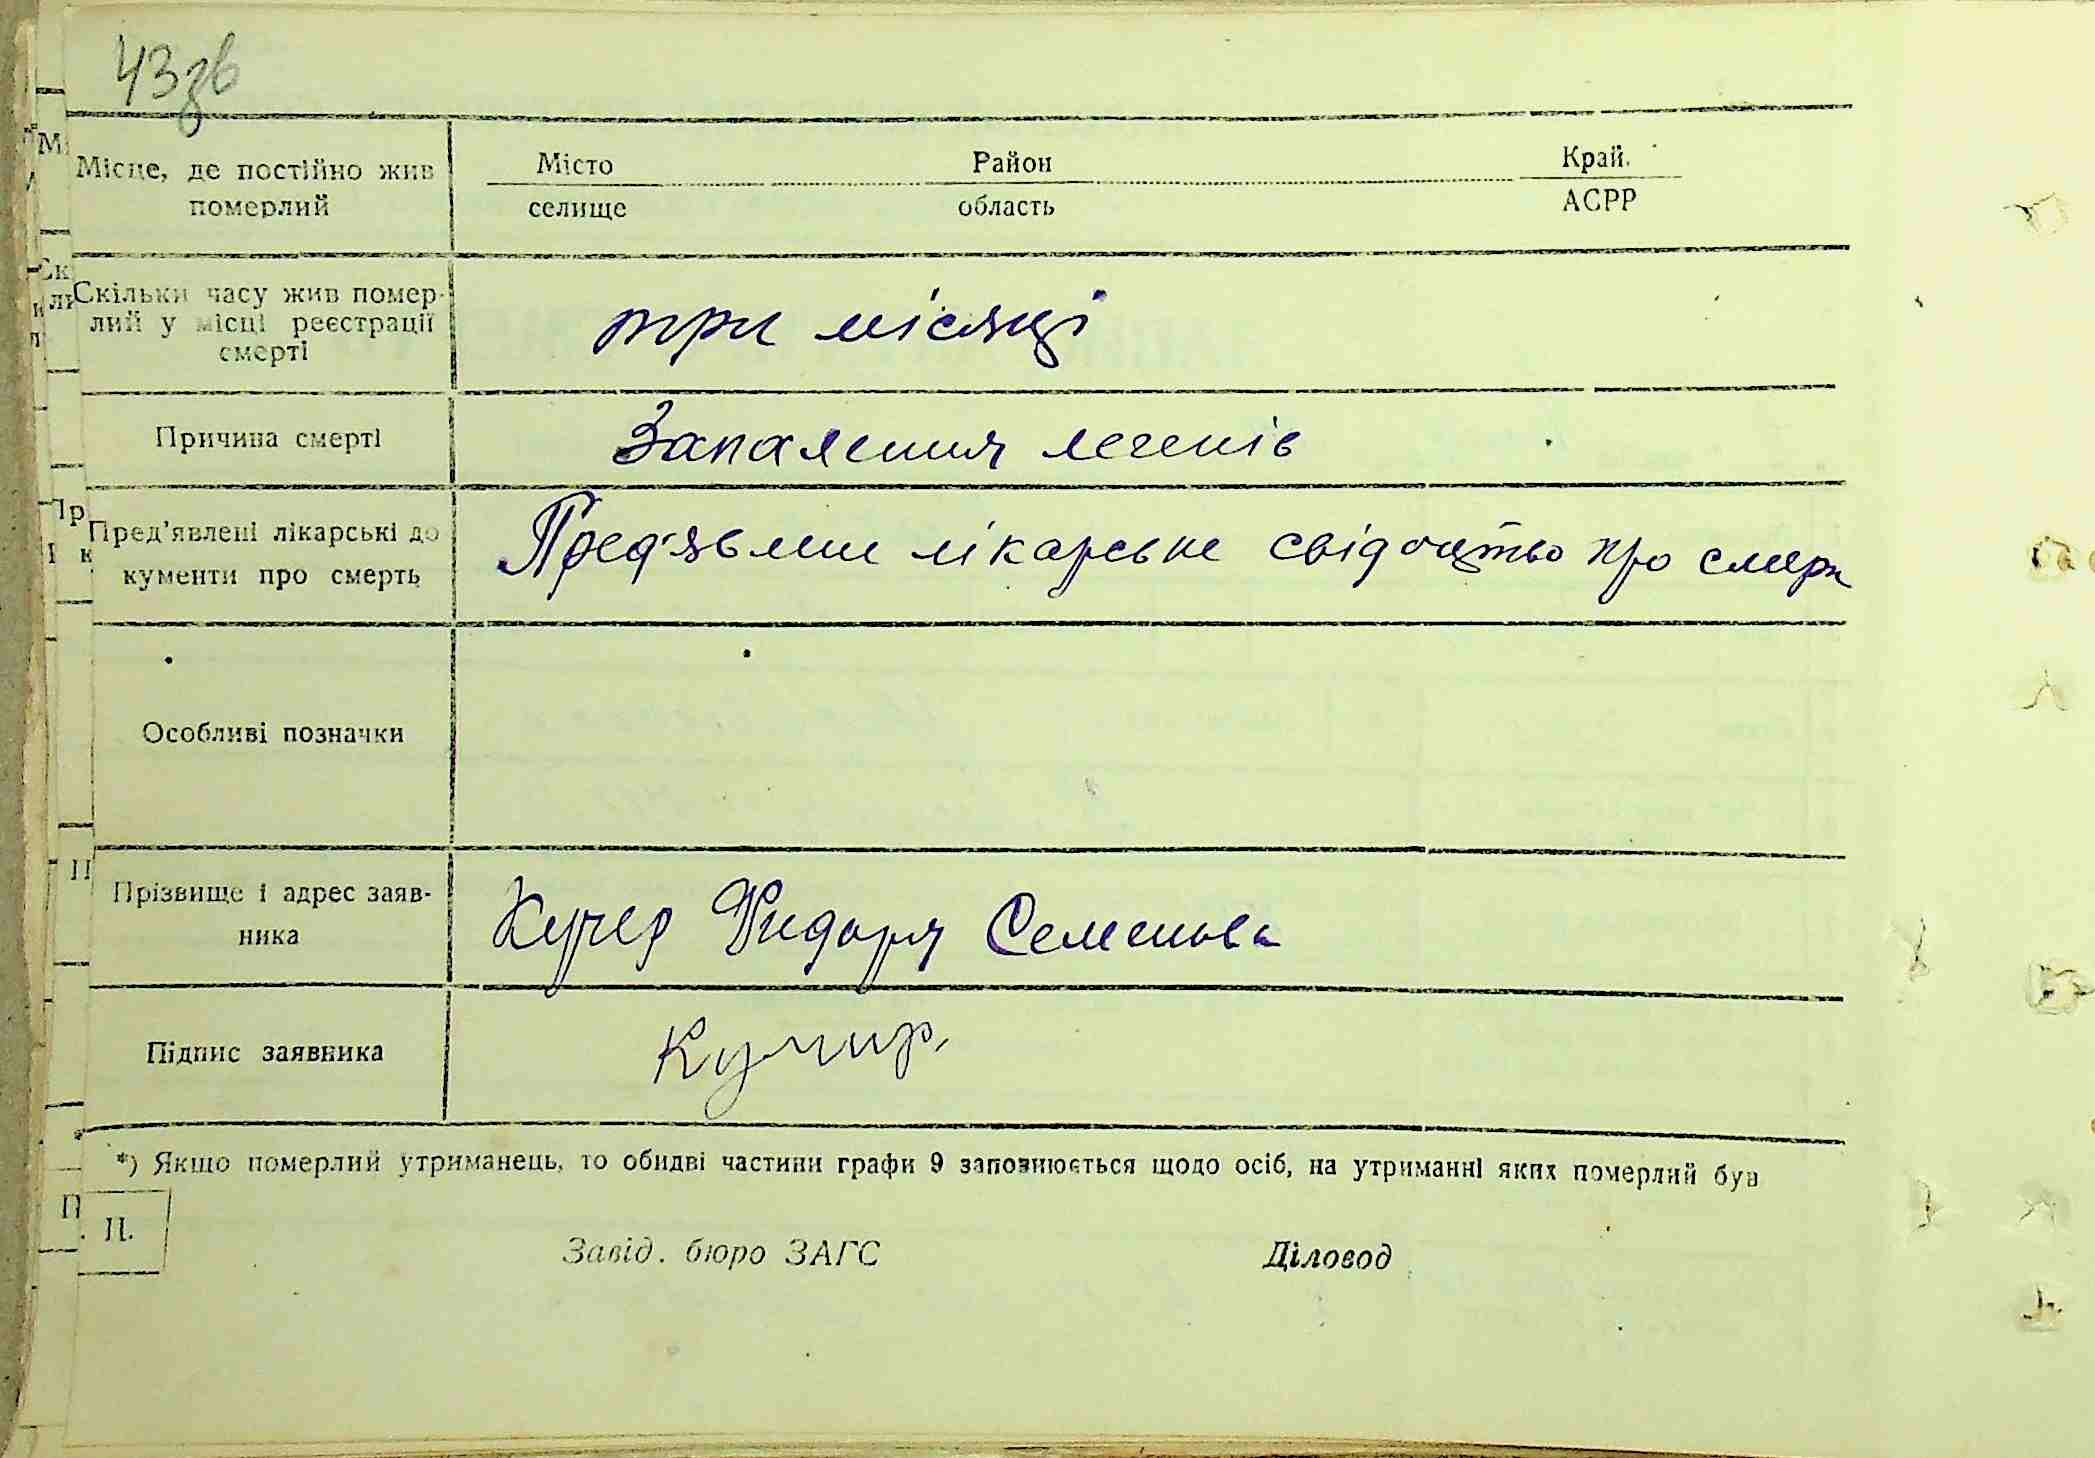 43зв
Місце, де постійно жив
померлий
Місто Район Край.
селище область АСРР
Скільки часу жив помер-
лий у місці реєстрації
смерті
три місяці
Причина смерті
Запалення легенів
Пред'явлені лікарські до
кументи про смерть
Пред'явлене лікарське свідоцтво про смерт
Особливі позначки
Прізвище і адрес заяв-
ника
Кучер Фидоря Семенова
Підпис заявника
Кучир.
*) Якщо померлий утриманець, то обидві частини графи 9 заповнюється щодо осіб, на утриманні яких померлий був
П.
Завід. бюро ЗАГС Діловод